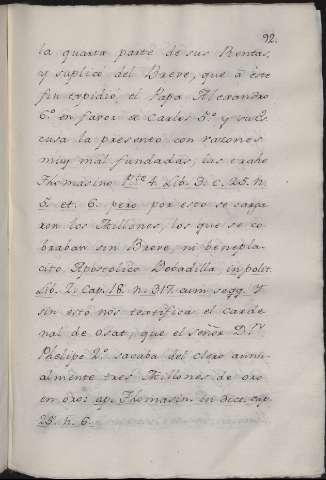 92.
la quarta parte de sus Rentas,
y suplicó del Breve, que à este
fin expidió, el Papa Alexandro
6º en favor de Carlos 5º y su Es
cusa la presentó con razones
muy mal fundadas, las trahe
Thomasino Pte 4. Lib. 3. c. 25. n.
5. et. 6. pero por esto se carga
ron los Millones, los que se co
braban sin Breve, ni benepla
cito Apostolico Bobadilla in polit.
Lib. 2. Cap. 18. n. 317. cum seqq. Y
sin esto nos textifica el Carde
nal de Osat, que el señor D.n
Phelipe 2º sacaba del clero annu
almente tres Millones de oro
en oro: ap. Thomasin. in dict. cap.
25. n. 6.